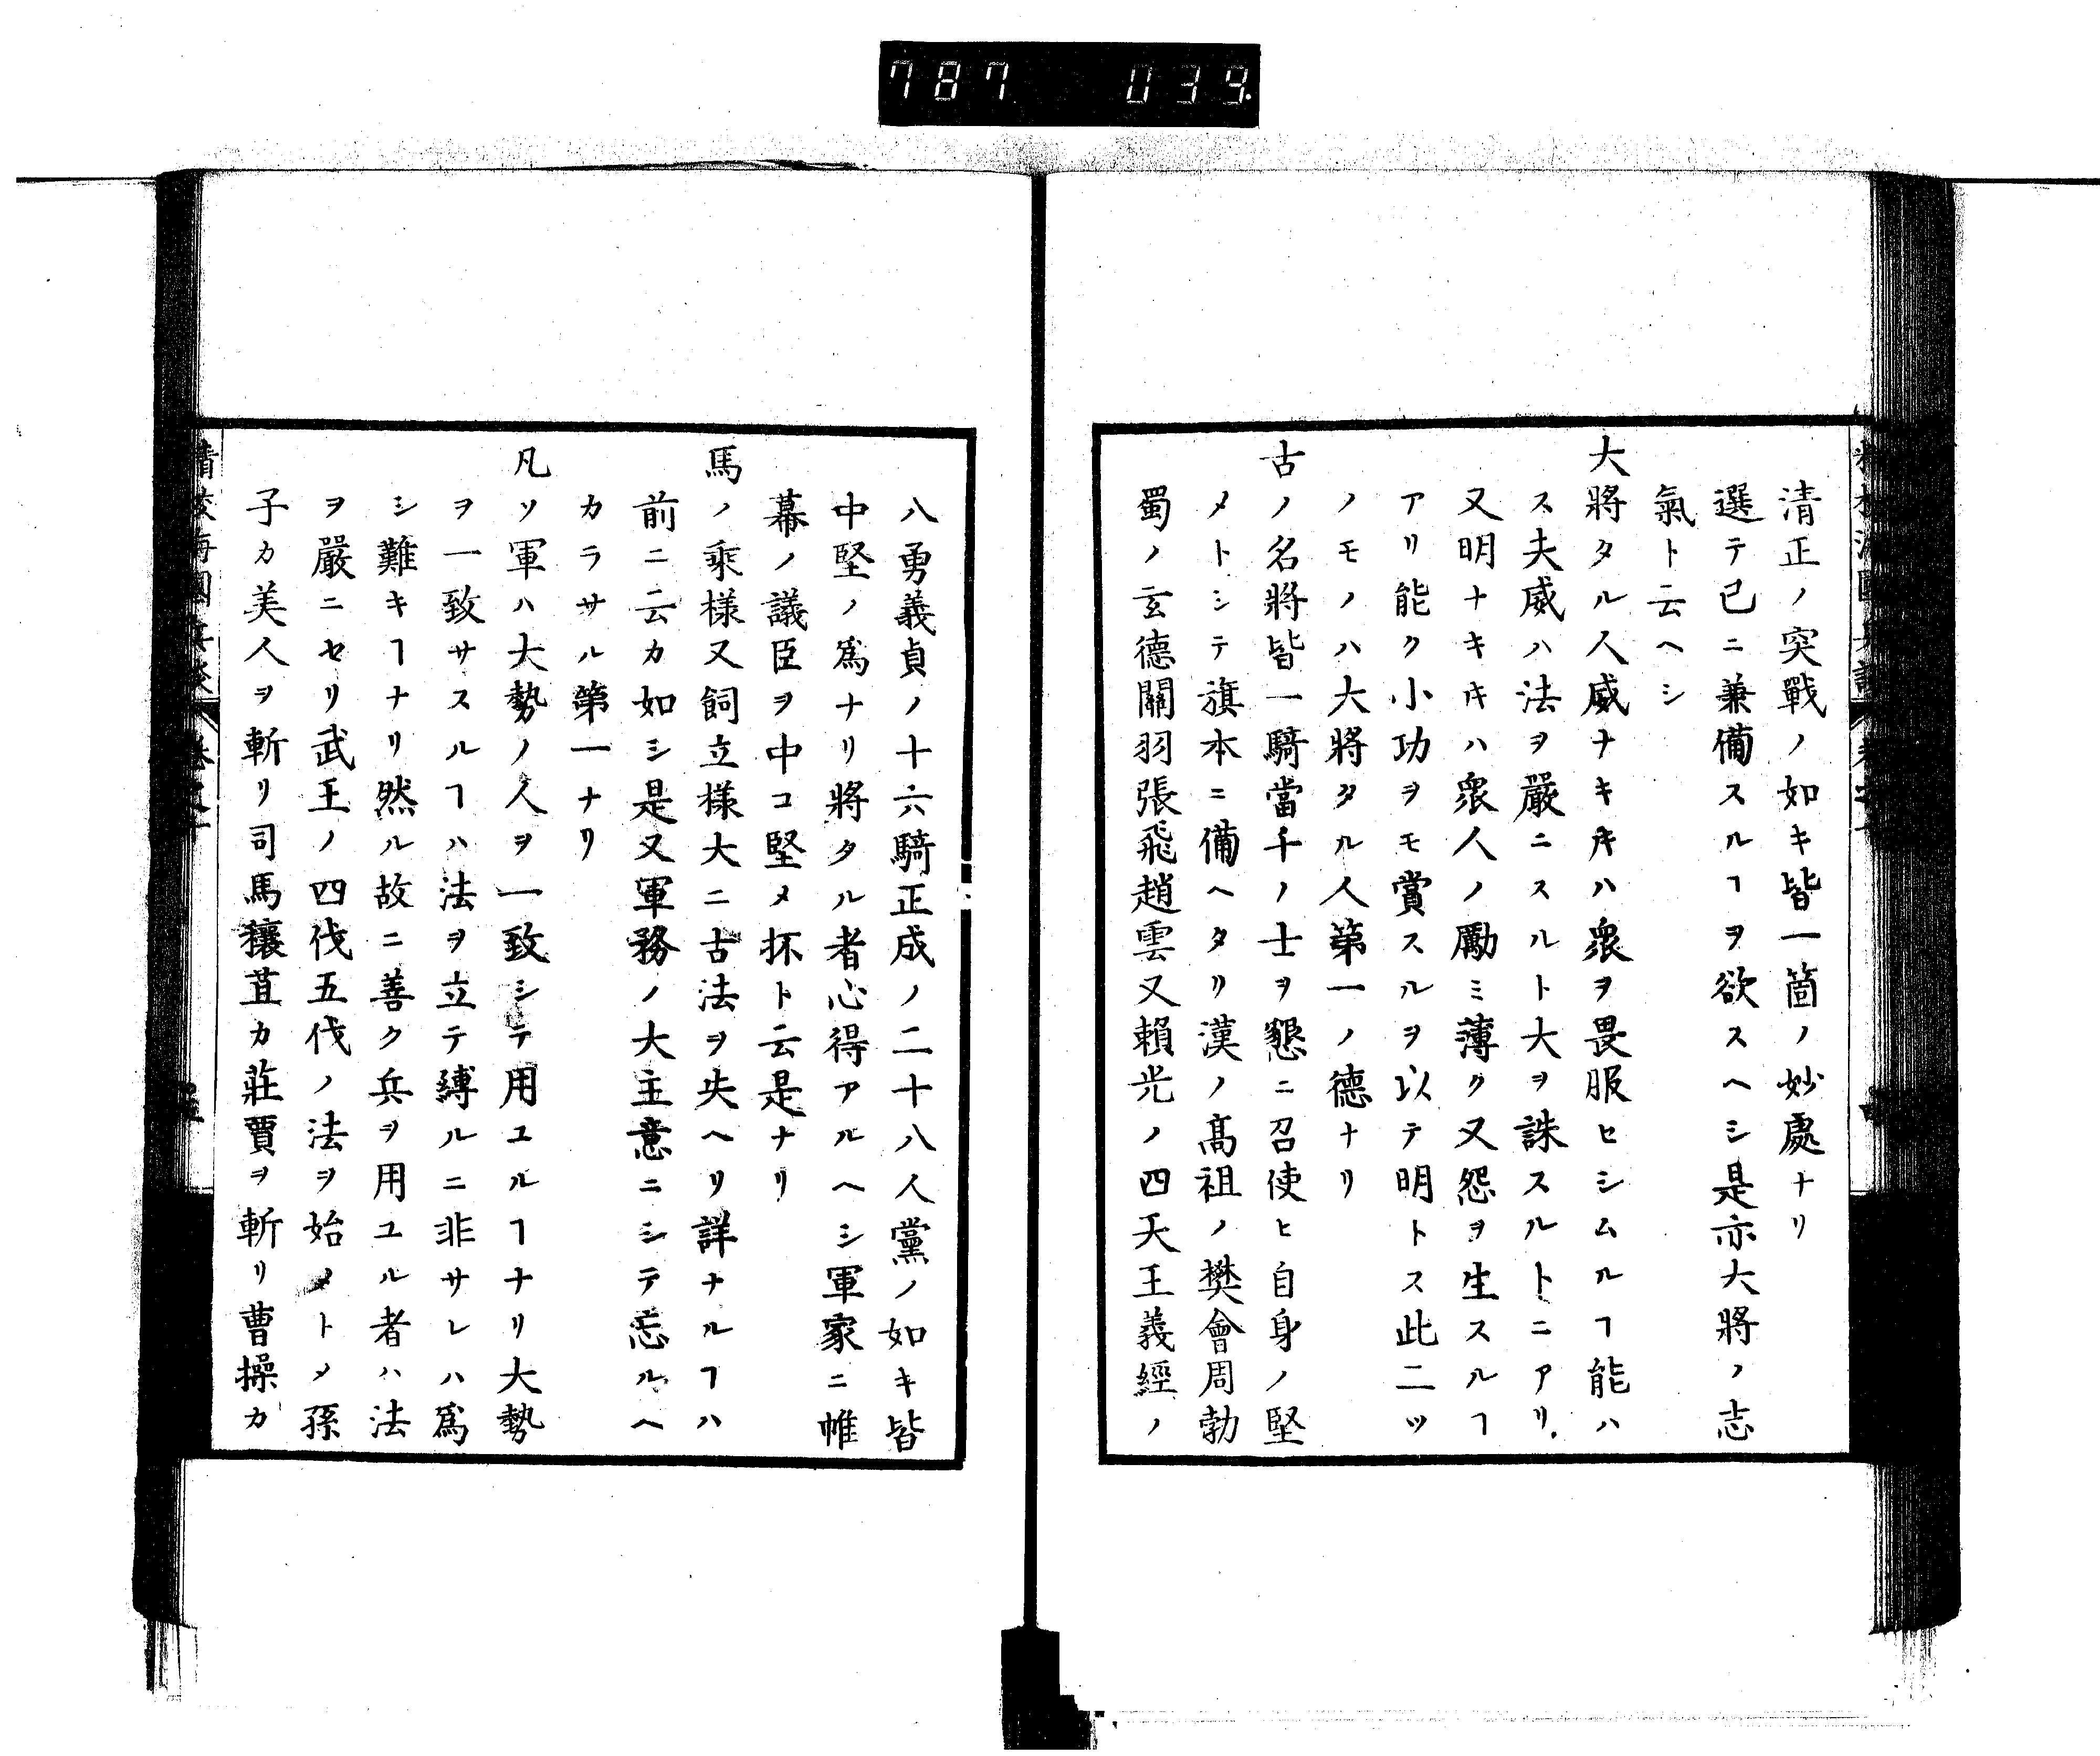 787 039.
清正ノ突戰ノ如キ皆一箇ノ妙處ナリ
選テ己ニ兼備スルヿヲ欲スヘシ是亦大將ノ志
氣ト云ヘシ
大將タル人威ナキキハ衆ヲ畏服ヒシムルヿ能ハ
ス夫威ハ法ヲ嚴ニスルト大ヲ誅スルトニアリ
又明ナキキハ衆人ノ勵ミ薄ク又怨ヲ生スルヿ
アリ能ク小功ヲモ賞スルヲ以テ明トス此二ツ
ノモノハ大將タル人第一ノ德ナリ
古ノ名將皆一騎當千ノ士ヲ懇ニ召使ヒ自身ノ堅
メトシテ旗本ニ備ヘタリ漢ノ髙祖ノ樊會周勃
蜀ノ玄德關羽張飛趙雲又賴光ノ四天王義經ノ
八勇義貞ノ十六騎正成ノ二十八人黨ノ如キ皆
中堅ノ爲ナリ將タル者心得アルヘシ軍家ニ帷
幕ノ議臣ヲ中コ堅メ抔ト云是ナリ
馬ノ乘様又飼立様大ニ古法ヲ失ヘリ詳ナルヿハ
前ニ云カ如シ是又軍務ノ大主意ニシテ忘ルヘ
カラサル第一ナリ
凡ソ軍ハ大勢ノ人ヲ一致シテ用ユルヿナリ大勢
ヲ一致サスルヿハ法ヲ立テ縛ルニ非サレハ爲
シ難キヿナリ然ル故ニ善ク兵ヲ用ユル者ハ法
ヲ嚴ニセリ武王ノ四伐五伐ノ法ヲ始メトメ孫
子カ美人ヲ斬リ司馬穰苴カ莊賈ヲ斬リ曹操カ